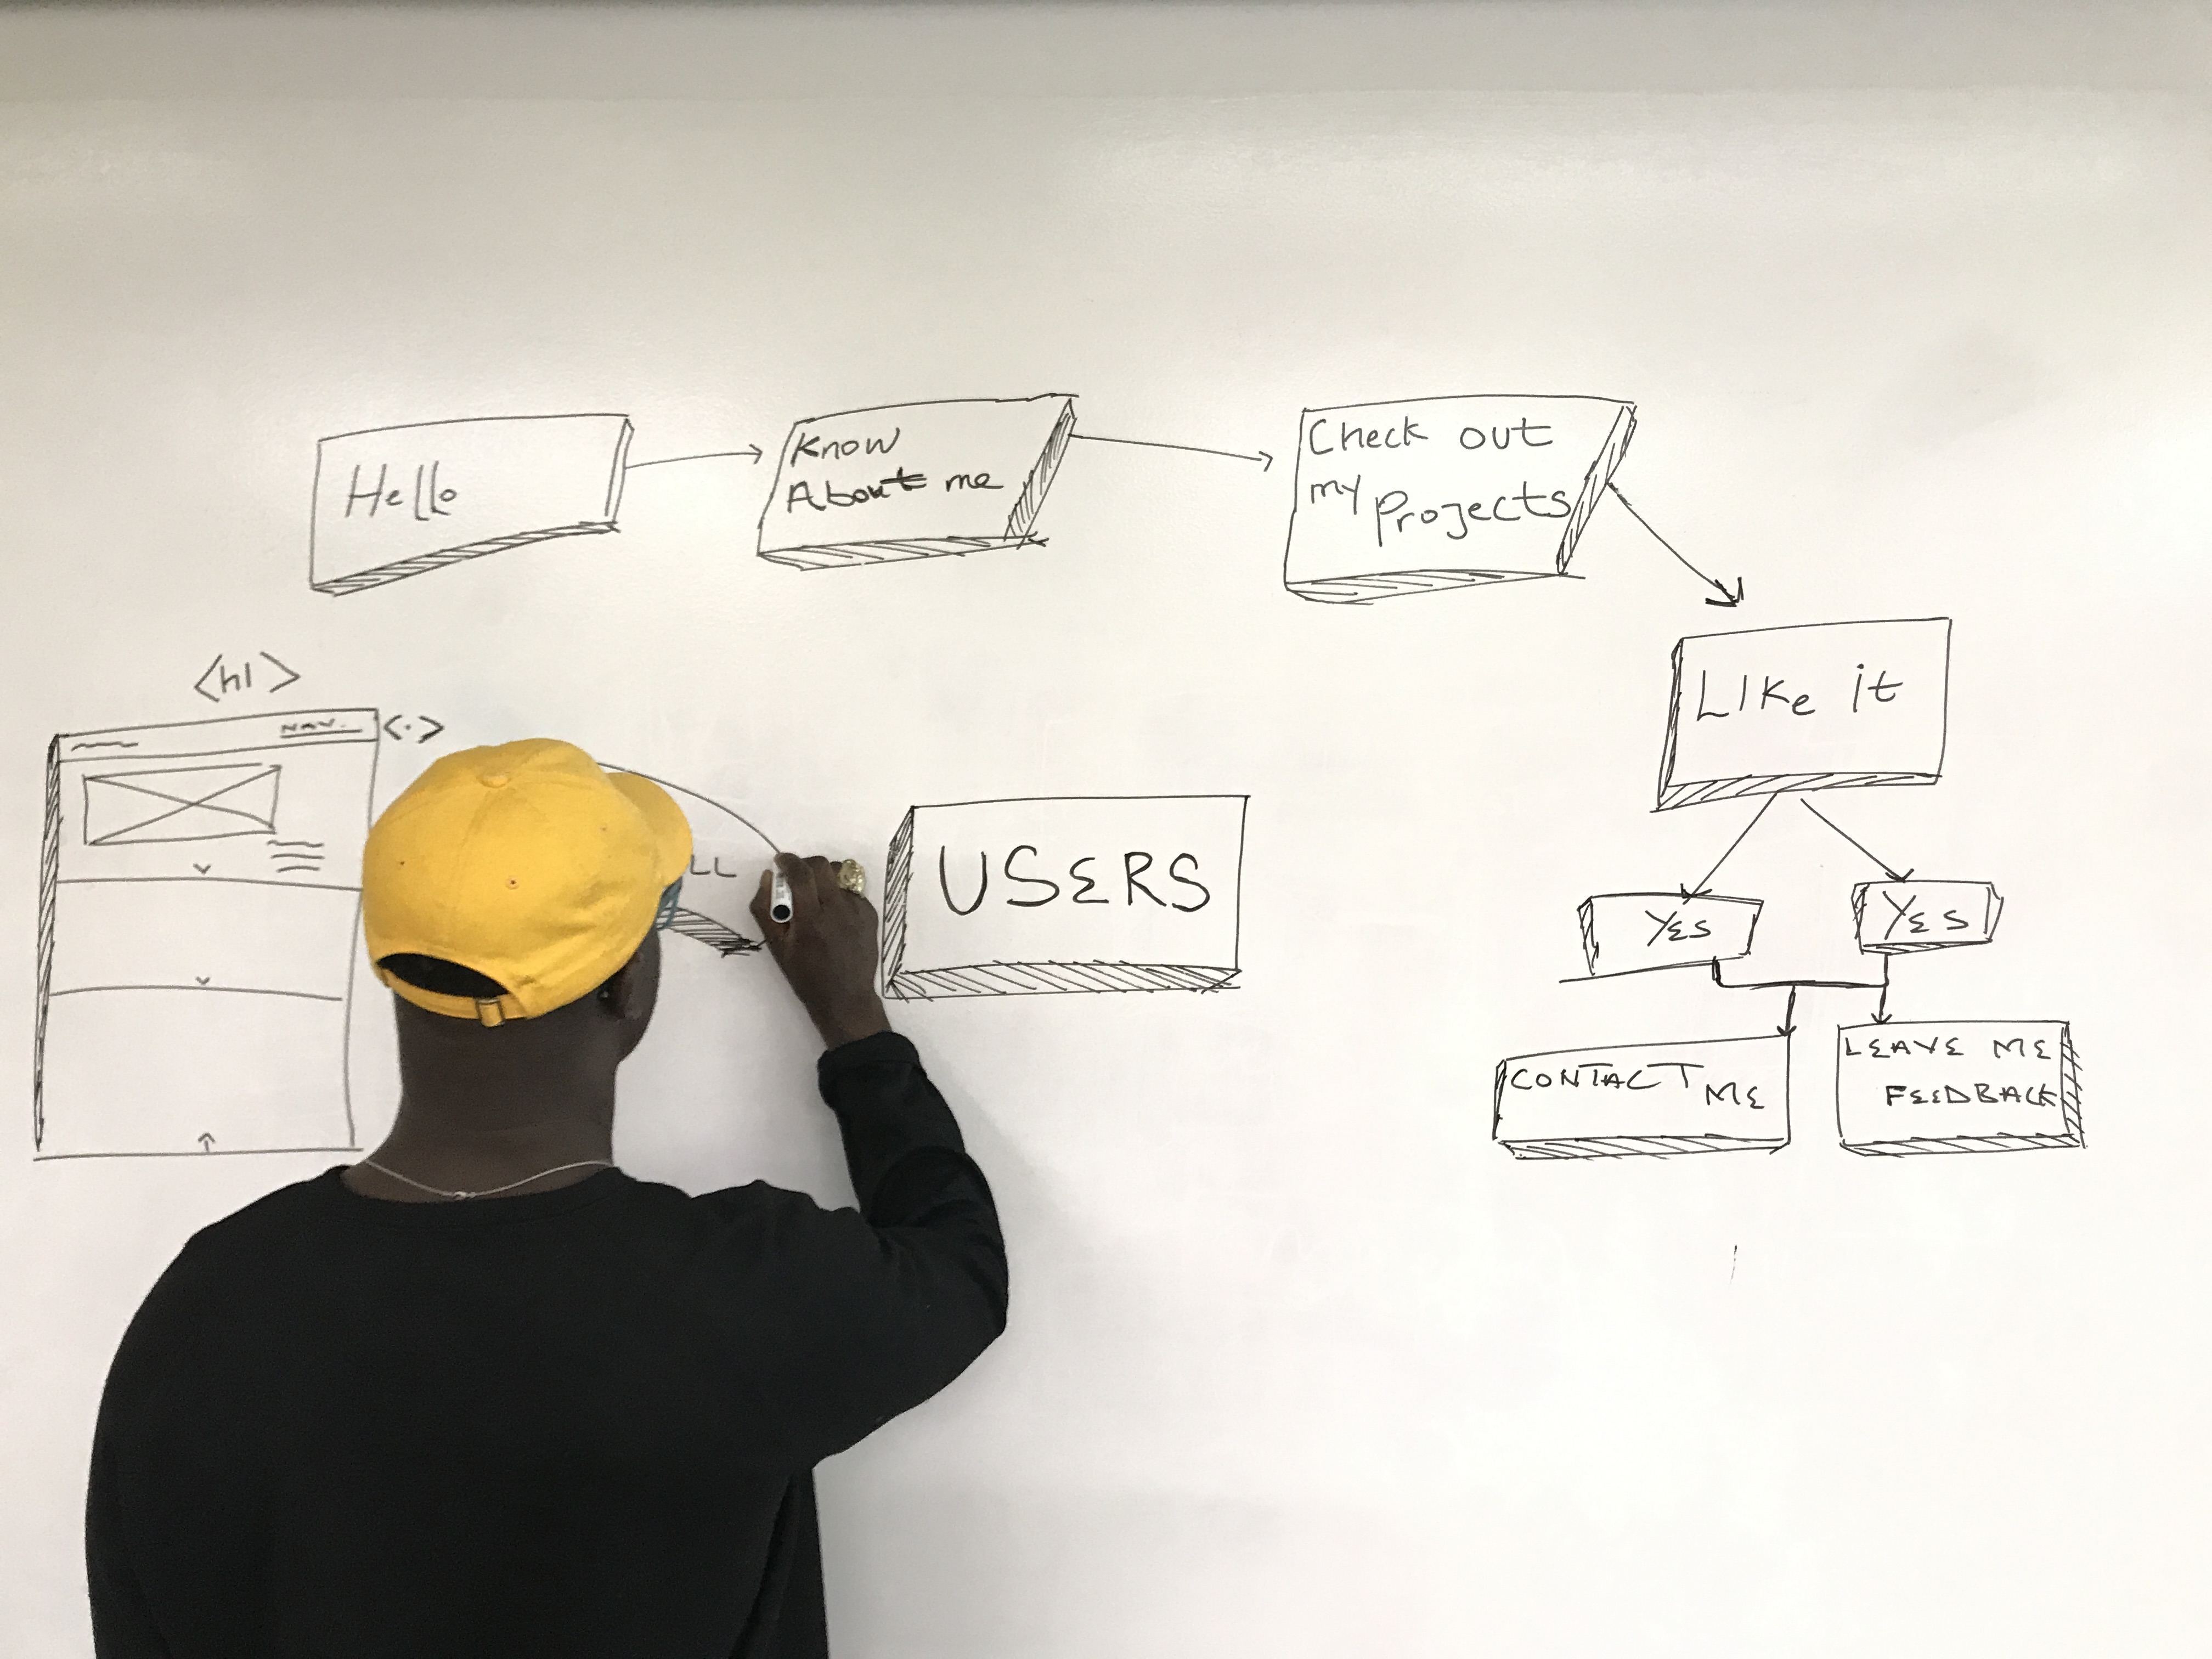 Hello
Know
About me
Check out
my Projects
Like it
YES
YES
CONTACT ME
LEAVE ME
FEEDBACK
<h1>
NAV.
<·>
LL
USERS